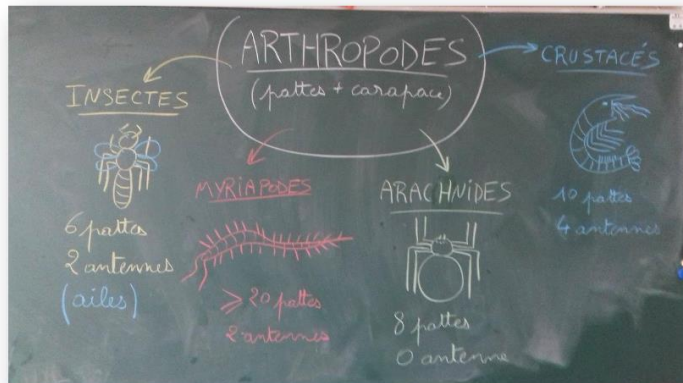 ARTHROPODES
(pattes + carapace)
INSECTES
6 pattes
2 antennes
(ailes)
MYRIAPODES
⩾ 20 pattes
2 antennes
ARACHNIDES
8 pattes
0 antenne
CRUSTACÉS
10 pattes
4 antennes